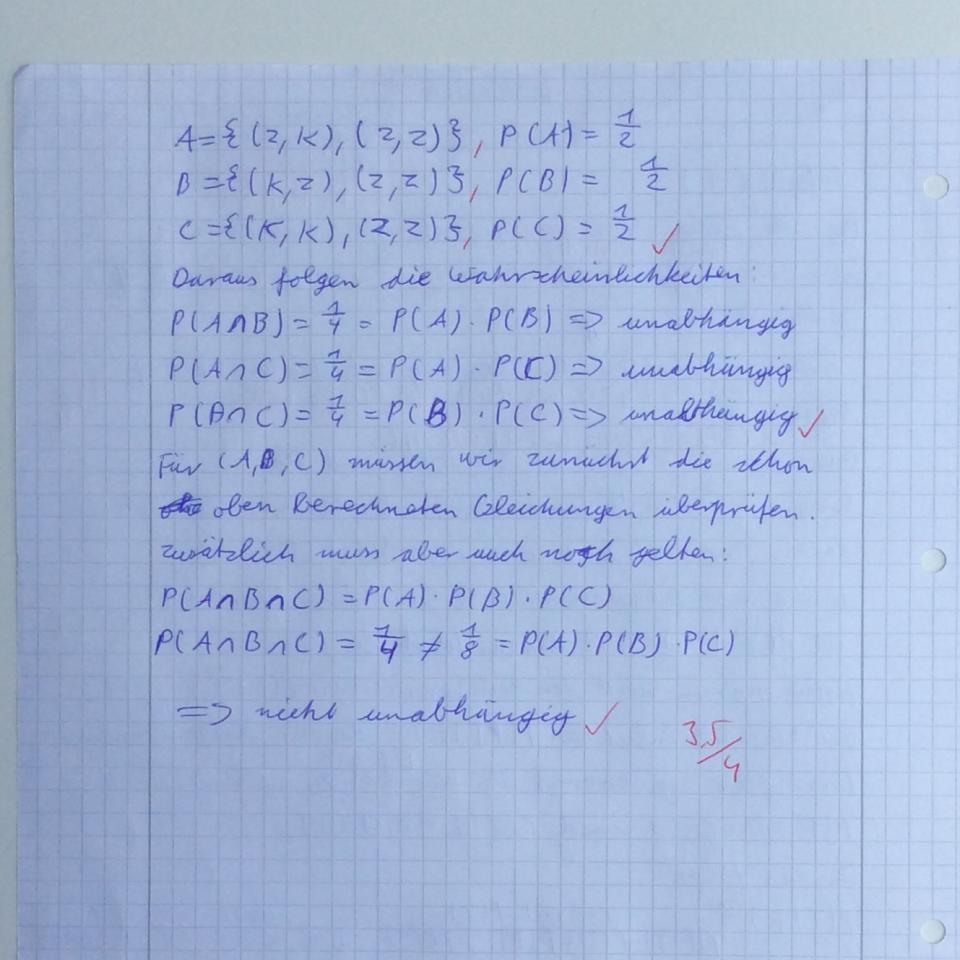 A={(Z,K),(Z,Z)}, P(A)=1/2
B={(K,Z),(Z,Z)}, P(B)= 1/2
C={(K,K),(Z,Z)}, P(C)=1/2 ✓
Daraus folgen die Wahrscheinlichkeiten:
P(A∩B)=1/4=P(A)·P(B)=> unabhängig
P(A∩C)=1/4=P(A)·P(C)=> unabhängig
P(B∩C)=1/4=P(B)·P(C)=> unabhängig ✓
Für (A,B,C) müssen wir zunächst die schon
oben Berechneten Gleichungen überprüfen.
Zusätzlich muss aber auch noch gelten:
P(A∩B∩C)=P(A)·P(B)·P(C)
P(A∩B∩C)=1/4≠1/8=P(A)·P(B)·P(C)
=> nicht unabhängig ✓
3,5/4